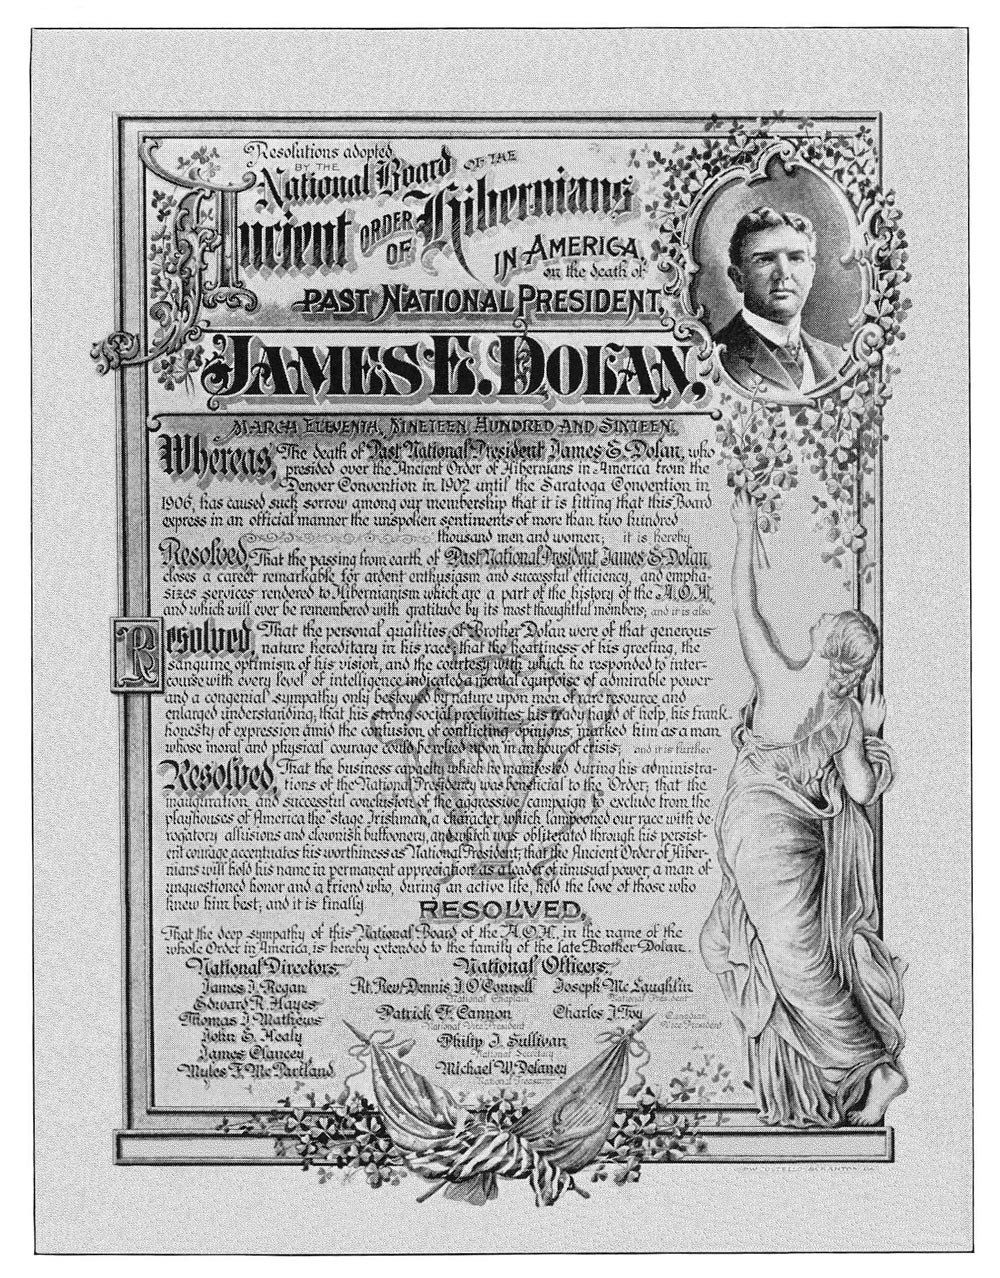 Resolutions adopted
BY THE
National Board OF THE
Ancient ORDER OF Hibernians
IN AMERICA,
on the death of
PAST NATIONAL PRESIDENT,
JAMES E. DOLAN,
MARCH ELEVENTH, NINETEEN HUNDRED AND SIXTEEN.
Whereas, The death of Past National President James E. Dolan, who
presided over the Ancient Order of Hibernians in America from the
Denver Convention in 1902 until the Saratoga Convention in
1906, has caused such sorrow among our membership that it is fitting that this Board
express in an official manner the unspoken sentiments of more than two hundred
thousand men and women; it is hereby
Resolved That the passing from earth of Past National President James E. Dolan,
closes a career remarkable for ardent enthusiasm and successful efficiency, and empha-
sizes services rendered to Hibernianism which are a part of the history of the A.O.H.,
and which will ever be remembered with gratitude by its most thoughtful members; and it is also
Resolved, That the personal qualities of Brother Dolan were of that generous
nature hereditary in his race; that the heartiness of his greeting, the
sanguine optimism of his vision, and the courtesy with which he responded to inter-
course with every level of intelligence indicated a mental equipoise of admirable power
and a congenial sympathy only bestowed by nature upon men of rare resource and
enlarged understanding; that his strong social proclivities, his ready hand of help, his frank
honesty of expression amid the confusion of conflicting opinions, marked him as a man
whose moral and physical courage could be relied upon in an hour of crisis; and it is further
Resolved, That the business capacity which he manifested during his administra-
tions of the National Presidency was beneficial to the Order; that the
inauguration and successful conclusion of the aggressive campaign to exclude from the
playhouses of America the stage Irishman, a character which lampooned our race with de-
rogatory allusions and clownish buffoonery, and which was obliterated through his persist-
ent courage accentuates his worthiness as National President; that the Ancient Order of Hiber-
nians will hold his name in permanent appreciation as a leader of unusual power, a man of
unquestioned honor and a friend who, during an active life, held the love of those who
knew him best; and it is finally
RESOLVED,
That the deep sympathy of this National Board of the A.O.H., in the name of the
whole Order in America, is hereby extended to the family of the late Brother Dolan.
National Directors.
James J. Regan
Edward R. Hayes
Thomas J. Mathews
John E. Healy
James Clancey
Myles F. McPartland
National Officers.
Rt. Rev. Dennis J. O'Connell
National Chaplain
Joseph McLaughlin
National President
Patrick F. Cannon
National Vice President
Charles J. Foy
Canadian
Vice President
Philip J. Sullivan
National Secretary
Michael W. Delaney
National Treasurer
P.W. COSTELLO SCRANTON PA.